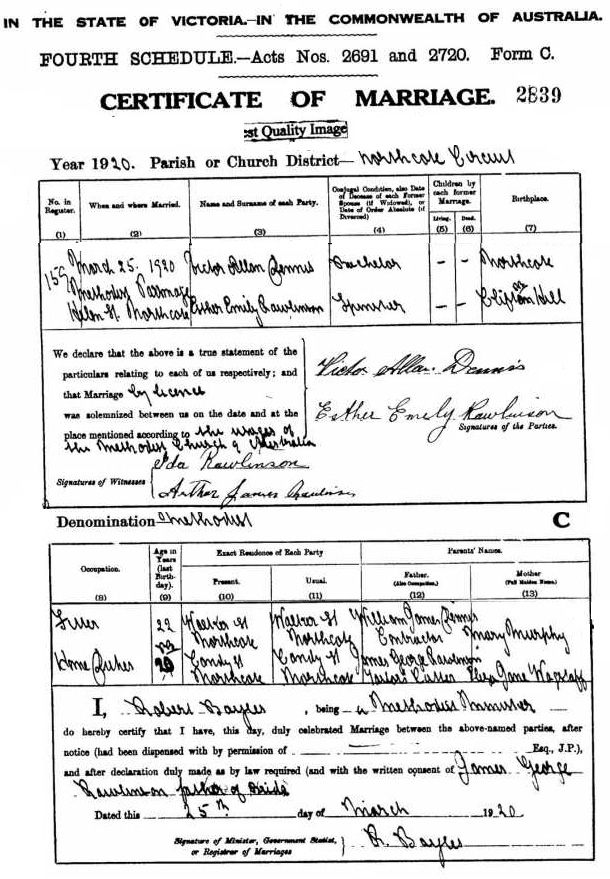 IN THE STATE OF VICTORIA.—IN THE COMMONWEALTH OF AUSTRALIA.
FOURTH SCHEDULE.—Acts Nos. 2691 and 2720. Form C.
CERTIFICATE OF MARRIAGE. 2839
st Quality Image
Year 1920. Parish or Church District— Northcote Circuit
No. in Register. When and where Married. Name and Surname of each Party. Conjugal Condition, also Date of Decease of each Former Spouse (if Widowed), or Date of Order Absolute (if Divorced) Children by each former Marriage. Living. Dead. Birthplace.
(1) (2) (3) (4) (5) (6) (7)
159 March 25. 1920 Victor Allan Dennis Bachelor – – Northcote
Methodist Parsonage
Helen St Northcote Esther Emily Rawlinson Spinster – – Clifton Hill
We declare that the above is a true statement of the
particulars relating to each of us respectively; and
that Marriage by licence
was solemnized between us on the date and at the
place mentioned according to the usages of
the Methodist Church of Australia
Victor Allan Dennis
Esther Emely Rawlinson
Signatures of the Parties.
Signatures of Witnesses
Ida Rawlinson
Arthur James Rawlinson
Denomination Methodist C
Occupation. Age in Years (last Birth-day). Exact Residence of Each Party Present. Usual. Parents' Names. Father. (Also Occupation.) Mother (Full Maiden Name.)
(8) (9) (10) (11) (12) (13)
22 St Northcote St Northcote William James Dennis Contractor Mary Murphy
Home Duties Candy St Northcote Candy St Northcote James George Rawlinson Eliza Jane Wagstaff
I, Robert Bayles, being a Methodist Minister
do hereby certify that I have, this day, duly celebrated Marriage between the above-named parties, after
notice (had been dispensed with by permission of Esq., J.P.),
and after declaration duly made as by law required (and with the written consent of James George
Rawlinson father of Bride
Dated this 25th day of March 1920
Signature of Minister, Government Statist, or Registrar of Marriages
R. Bayles